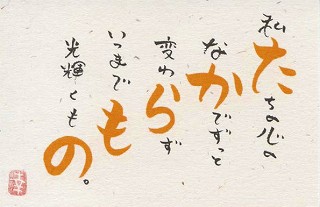 私たちの心の
なかでずっと
変わらず
いつまでも
光輝くもの。